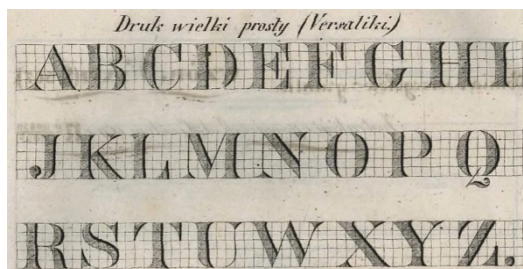 Druk wielki prosty (Versaliki.)
A B C D E F G H I
J K L M N O P Q
R S T U W X Y Z.